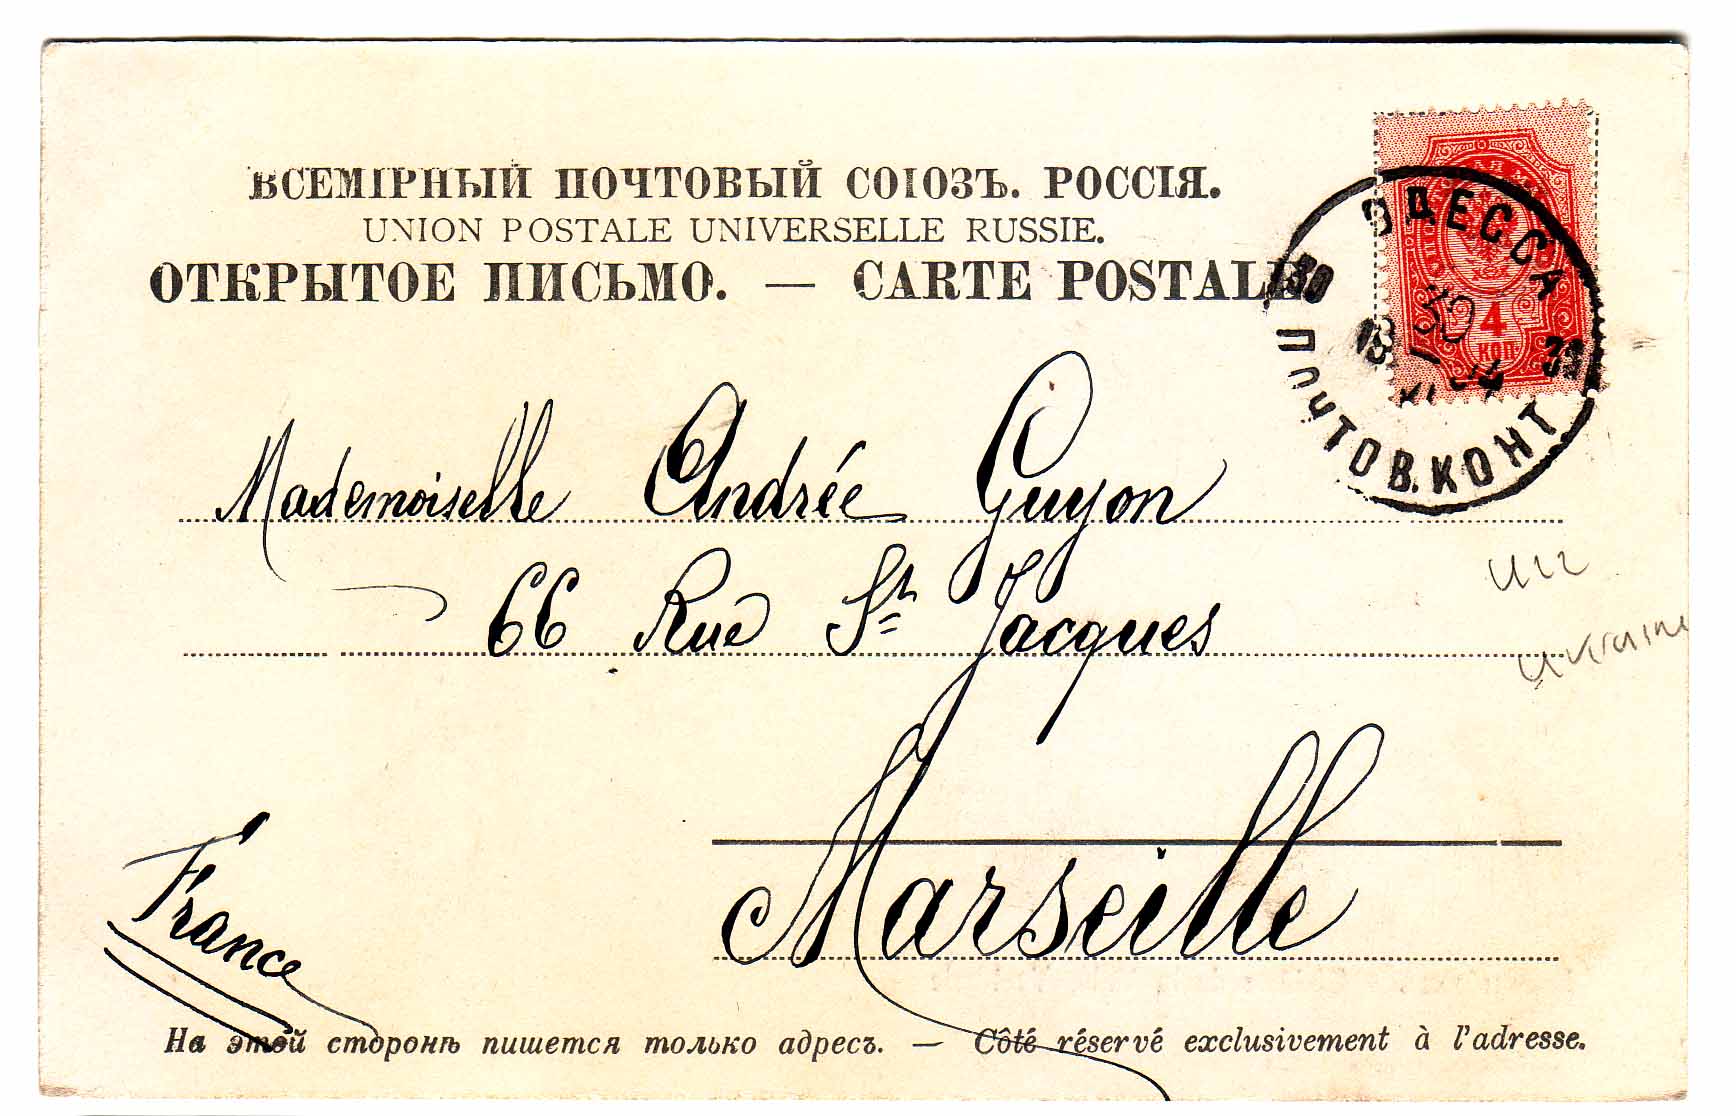 ВСЕМІРНЫЙ ПОЧТОВЫЙ СОЮЗЪ. РОССІЯ.
UNION POSTALE UNIVERSELLE RUSSIE.
ОТКРЫТОЕ ПИСЬМО. — CARTE POSTALE
ОДЕССА
30
30
4
КОП.
ПОЧТОВ. КОНТ
Mademoiselle Andrée Guyon
66 Rue St Jacques
Ukraine
Marseille
France
На этой сторонѣ пишется только адресъ. — Côté réservé exclusivement à l'adresse.